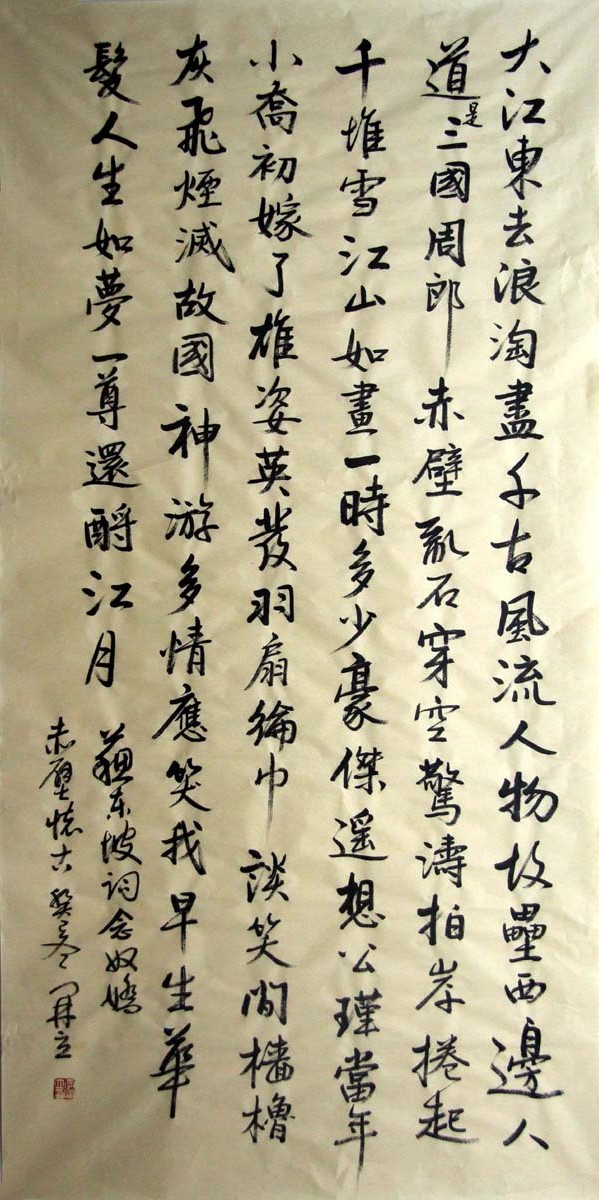 大江東去浪淘盡千古風流人物故壘西邊人
道是三國周郎赤壁亂石穿空驚濤拍岸捲起
千堆雪江山如畫一時多少豪傑遥想公瑾當年
小喬初嫁了雄姿英發羽扇綸巾談笑間檣櫓
灰飛煙滅故國神游多情應笑我早生華
髮人生如夢一尊還酹江月
蘇東坡詞念奴嬌
赤壁懷古癸巳冬